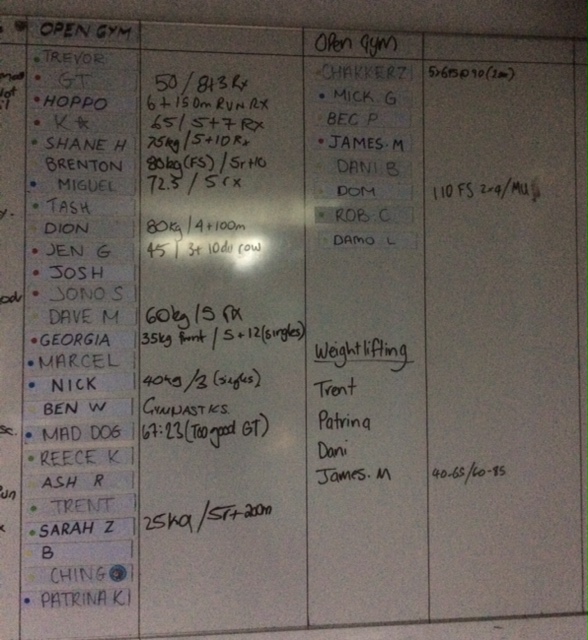 OPEN GYM
TREVOR
GT 50 / 8+3 Rx
HOPPO 6 + 150m RUN RX
65 / 5+7 RX
SHANE H 75kg / 5+10 Rx
BRENTON 80kg (FS) / 5r+10
MIGUEL 72.5 / 5 rx
TASH
DION 80kg / 4+100m
JEN G 45 / 3+10du row
JOSH
JONO S
DAVE M 60kg / 5 rx
GEORGIA 35kg front / 5+12 (singles)
MARCEL
NICK 40kg / 3 (singles)
BEN W GYMNASTICS
MAD DOG 67:23 (Too good GT)
REECE K
ASH R
TRENT
SARAH Z 25kg / 5r+200m
B
CHING
PATRINA K
Open gym
CHAKKERZ
MICK G
BEC P
JAMES.M
DANI B
DOM 110 FS 2x4 / MU
ROB C
DAMO L
Weightlifting
Trent
Patrina
Dani
James.M 40-65/60-85